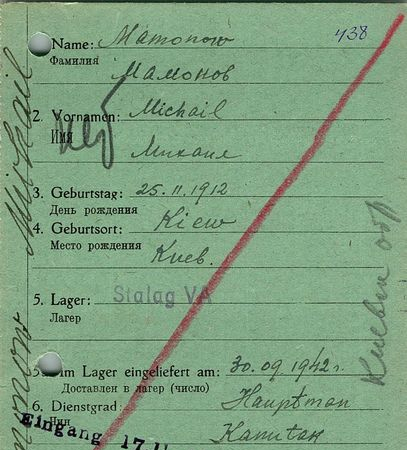 438
Name: Mamonow
Фамилия
Мамонов
2. Vornamen: Michail
Имя
Михаил
3. Geburtstag: 25.11.1912
День рождения
4. Geburtsort: Kiew
Место рождения
Киев.
5. Lager: Stalag VA
Лагерь
Im Lager eingeliefert am: 30.09.1942 г.
Доставлен в лагерь (число)
6. Dienstgrad: Hauptman
Чин
Капитан
Eingang 17.11
Michail
Киевск обл